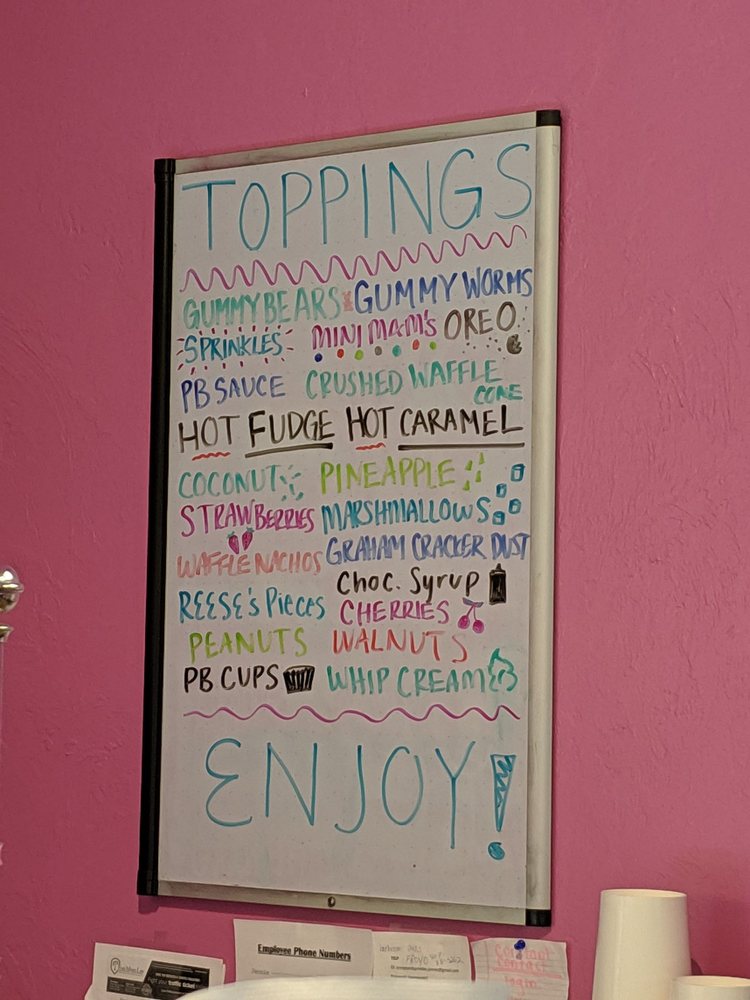 TOPPINGS
GUMMY BEARS GUMMY WORMS
SPRINKLES MINI M&M's OREO
PB SAUCE CRUSHED WAFFLE CONE
HOT FUDGE HOT CARAMEL
COCONUT PINEAPPLE
STRAWBERRIES MARSHMALLOWS
WAFFLE NACHOS GRAHAM CRACKER DUST
Choc. Syrup
REESE's PIECES CHERRIES
PEANUTS WALNUTS
PB CUPS WHIP CREAM
ENJOY!
Employee Phone Numbers
Constant
Contact
login